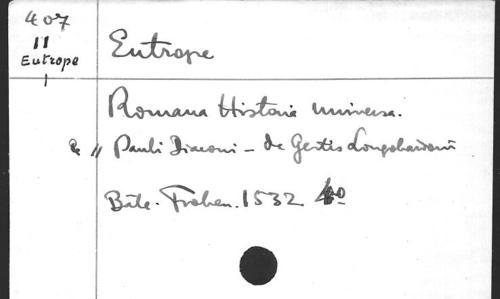 407
11
Eutrope
1
Eutrope
Romana Historia universa.
& " Pauli Diaconi - de Gestis Longobardorum
Bâle. Froben. 1532 4o